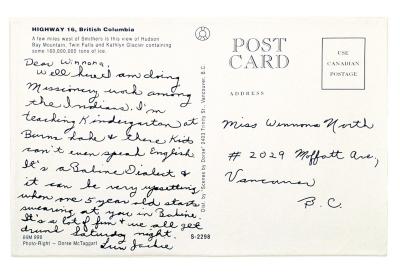 HIGHWAY 16, British Columbia
A few miles west of Smithers is this view of Hudson
Bay Mountain, Twin Falls and Kathlyn Glacier containing
some 160,000,000 tons of ice.
Dear Winnona,
Well here I am doing
Missionary work among
the Indians. I'm
teaching Kindergarten at
Burns Lake & these Kids
can't even speak English
It's a Babine Dialect &
it can be very upsetting
when one 5 year old starts
swearing at you in Babine.
It's a lot of fun & we all get
drunk Saturday night.
Luv Jackie
Photo-Right - Dorse McTaggart
S-2298
Dist. by "Scenes by Dorse" 2403 Trinity St., Vancouver, B.C.
POST
CARD
ADDRESS
USE
CANADIAN
POSTAGE
Miss Winnona North
# 2029 Moffatt Ave,
Vancouver
B.C.